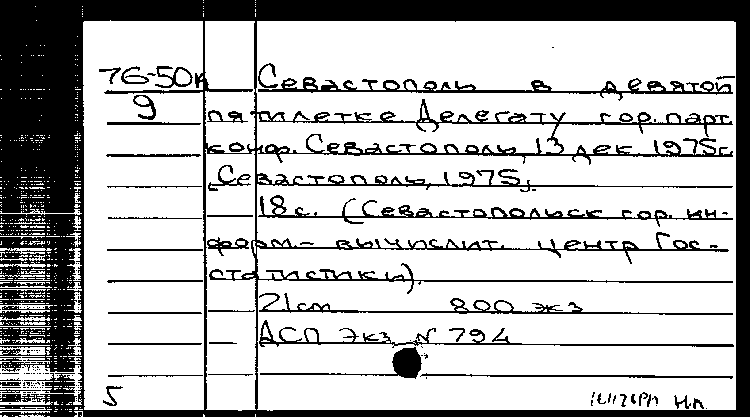 76-50к Севастополь в девятой
9 пятилетке Делегату гор. парт.
конф. Севастополь, 13 дек 1975г.
[Севастополь, 1975].
18 с. (Севастопольск гор. ин-
форм.- вычислит. центр Гос-
статистики).
21 см 800 экз
ДСП Экз. N 794
5 Н.п.